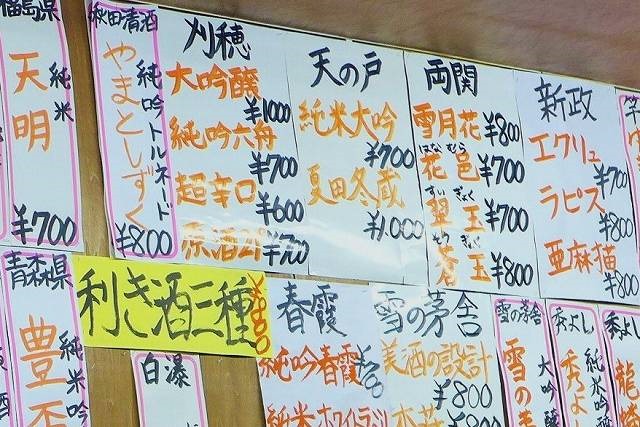 福島県
天明
純米
¥700
秋田清酒
やまとしずく
純吟トルネード
¥800
刈穂
大吟醸
¥1000
純吟六舟
¥700
超辛口
¥600
原酒
¥700
天の戸
純米大吟
¥700
夏田冬蔵
¥1.000
両関
雪月花 ¥800
はなむら
花邑 ¥700
すいぎょく
翠玉 ¥700
蒼玉 ¥800
新政
エクリュ
¥700
ラピス
¥800
亜麻猫
¥800
青森県
豊盃
純米吟
利き酒三種
白瀑
春霞
純吟春霞
¥700
純米
雪の茅舎
美酒の設計
¥800
雪の茅舎
雪の
大吟醸
秀よし
秀よ
純米吟
秀よし